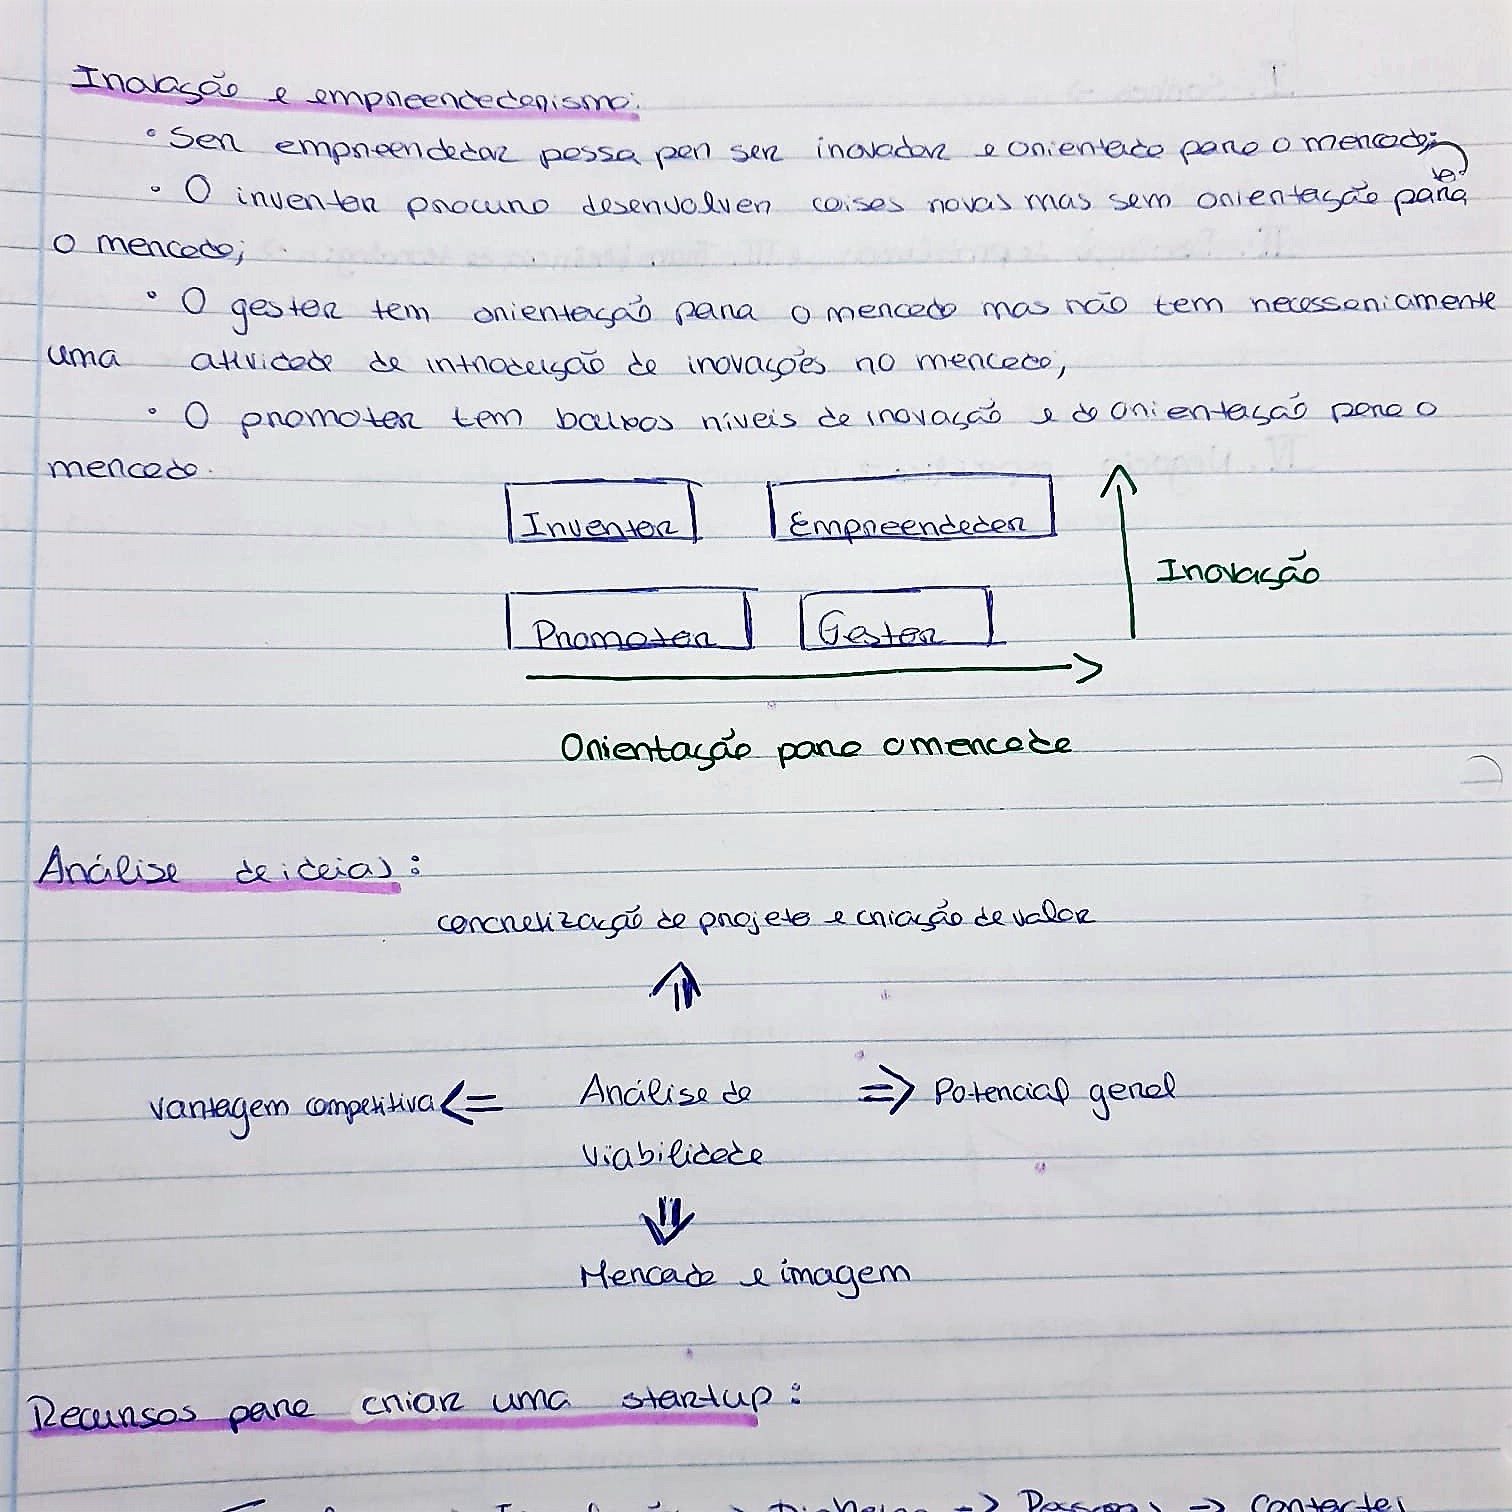 Inovação e empreendedorismo:
• Ser empreendedor passa por ser inovador e orientado para o mercado;
• O inventor procura desenvolver coisas novas mas sem orientação para
o mercado;
• O gestor tem orientação para o mercado mas não tem necessariamente
uma atividade de introdução de inovações no mercado;
• O promotor tem baixos níveis de inovação e de orientação para o
mercado.
Inventor Empreendedor
Inovação
Promotor Gestor
Orientação para o mercado
Análise de ideias:
concretização de projeto e criação de valor
⇑
vantagem competitiva <= Análise de => Potencial geral
viabilidade
⇓
Mercado e imagem
Recursos para criar uma startup:
Dinheiro -> Pessoas -> Contactos